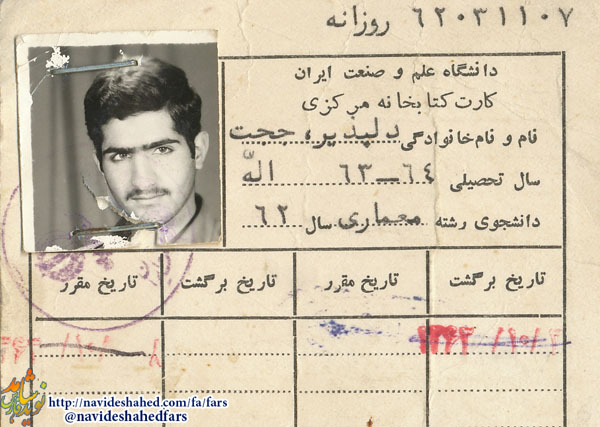 ۶۲۰۳۱۱۰۷ روزانه
دانشگاه علم و صنعت ایران
کارت کتابخانه مرکزی
نام و نام‌خانوادگی دلپذیر، حجت
سال تحصیلی ۶۴—۶۳ الله
دانشجوی رشته معماری سال ۶۲
تاریخ برگشت تاریخ مقرر تاریخ برگشت تاریخ مقرر
نوید شاهد
http://navideshahed.com/fa/fars
@navideshahedfars